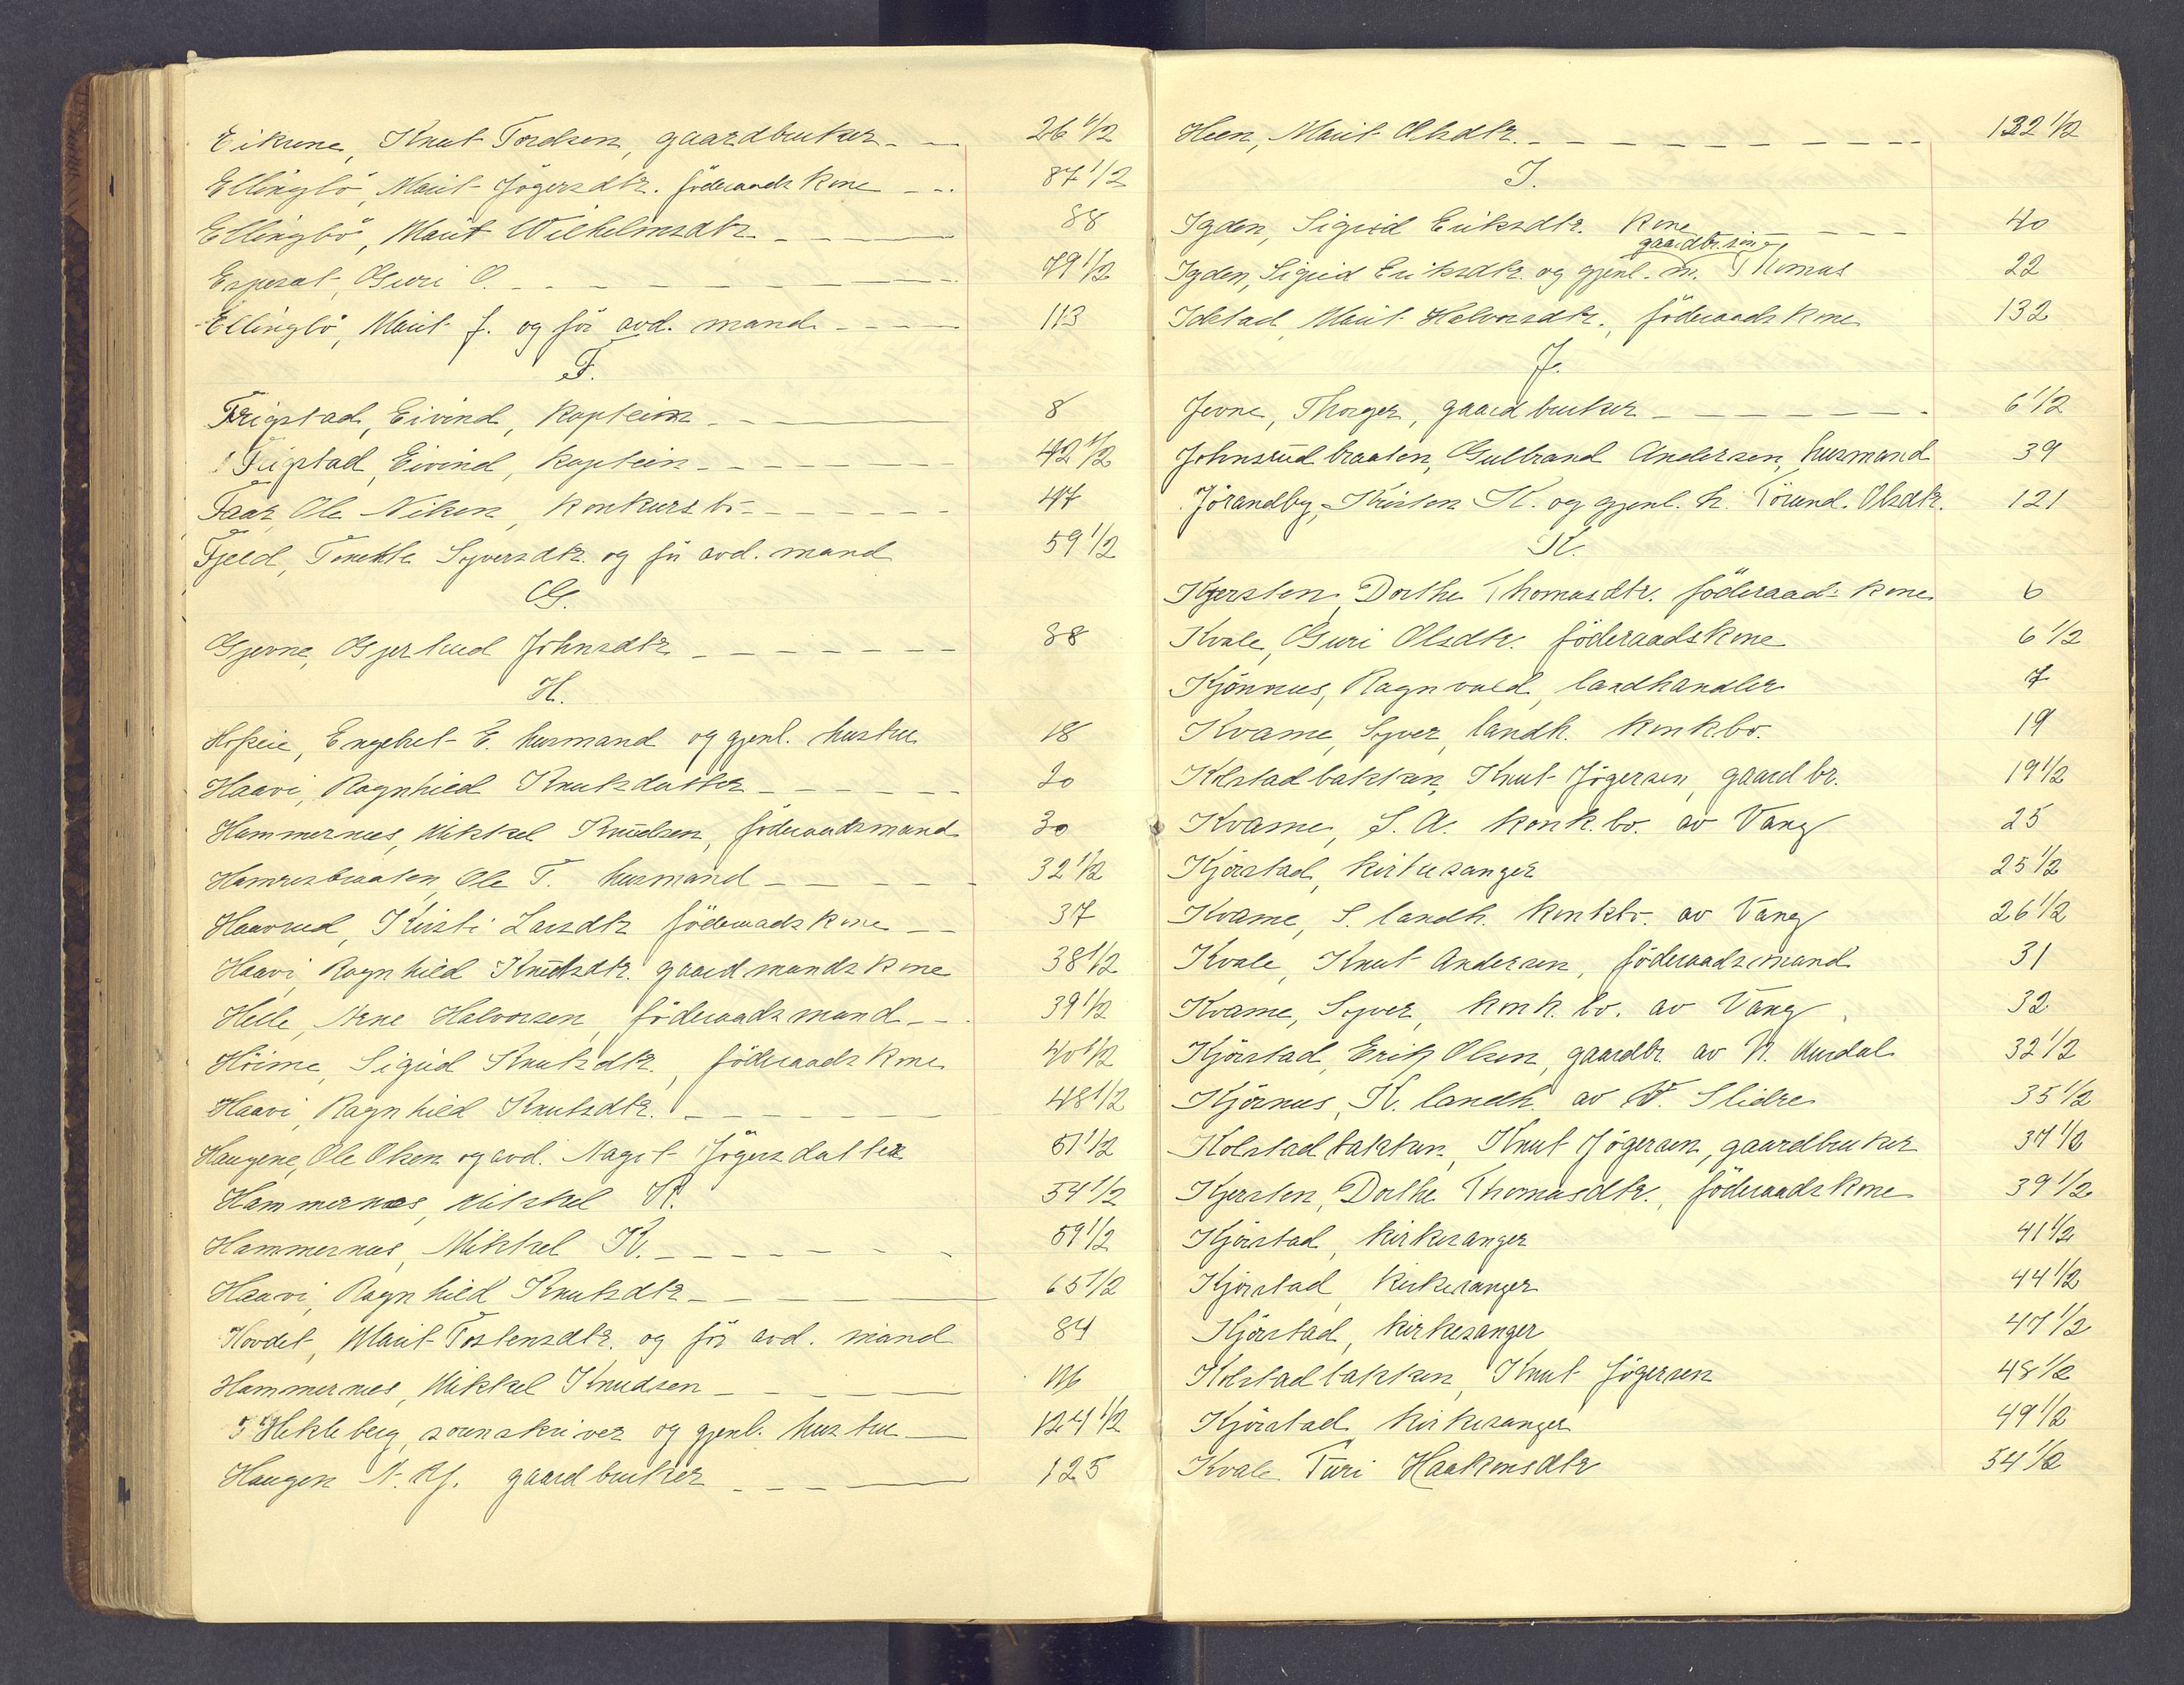 Eikrene, Knut Tordsen, gaardbruker 26 1/2
Ellingbö, Marit Jögersdtr. föderaadskone 87 1/2
Ellingbö, Marit Wilhelmsdtr. 88
Guri O. 79 1/2
Ellingbö, Marit J. ogför avd. mand 113
F.
Frigstad, Eivind, kaptein 8
Frigstad, Eivind, kaptein 42 1/2
Ole konkursbo 47
Fjeld, Syversdtr. og för avd. mand 59 1/2
G.
Gjevne, Gjertrud Johnsdtr. 38
H.
Engebret E. husmand og gjenl. hustru 18
Haavi, Ragnhild Knutsdatter 20
Hammernes, Mikkel Knudsen, föderaadsmand 30
Hamresbraaten, Ole T. husmand 32 1/2
Haavrud, Kirsti Larsdtr föderaadskone 37
Haavi, Ragnhild Knutsdtr. gaardmandskone 38 1/2
Helle, Arne Halvorsen, föderaadsmand 39 1/2
Höime, Sigrid Knutsdtr., föderaadskone 40 1/2
Haavi, Ragnhild Knutsdtr. 48 1/2
Haugene, Ole Olsen og avd. Magit Jögersdatter 51 1/2
Hammernes, Mikkel K. 54 1/2
Hammernes, Mikkel K. 59 1/2
Haavi, Ragnhild Knutsdtr 65 1/2
Hovdet, Marit Tostensdtr. og för avd. mand 84
Hammernes, Mikkel Knudsen 116
Hekleberg, sorenskriver og gjenl. hustru 124 1/2
Haugen gaardbruker 125
Heen, Marit Olsdtr. 132 1/2
I.
Igden, Sigrid Eriksdtr. kone 40
gaardbr.
Igden, Sigrid Eriksdtr. og gjenl. m. Thomas 22
Idstad, Marit Halvorsdtr., föderaadskone 132
J.
Jevne, Thorger, gaardbruker 6 1/2
Johnsrudbraaten, Gulbrand Andersen, husmand 39
Jörandby, Kristen K. og gjenl. h. Jörund Olsdtr. 121
K.
Kjersten, Dorthe Thomasdtr. föderaadskone 6
Kvale, Guri Olsdtr. föderaadskone 6 1/2
Kjörnnes, Ragnvald, landhandler 7
Kvame, Syver, landh. konk.bo. 19
Kolstadbakken, Knut Jögersen, gaardbr. 19 1/2
Kvame, S. A. konk.bo. av Vang 25
Kjörstad, kirkesanger 25 1/2
Kvame, S. landh. konkbo. av Vang 26 1/2
Kvale, Knut Andersen, föderaadsmand 31
Kvame, Syver, konk. bo. av Vang 32
Kjörstad, Erik Olsen, gaardbr. av N. Aurdal 32 1/2
Kjörnes, K. landh. av V. Slidre 35 1/2
Kolstadbakken, Knut Jögersen, gaardbruker 37 1/2
Kjersten, Dorthe Thomasdtr., föderaadskone 39 1/2
Kjörstad, kirkesanger 41 1/2
Kjörstad, kirkesanger 44 1/2
Kjörstad, kirkesanger 47 1/2
Kolstadbakken, Knut Jögersen 48 1/2
Kjörstad, kirkesanger 49 1/2
Kvale Turi Haakonsdtr 54 1/2